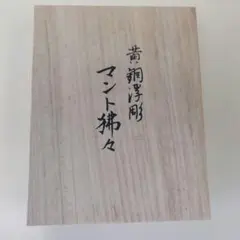 黄銅浮彫
マント狒々